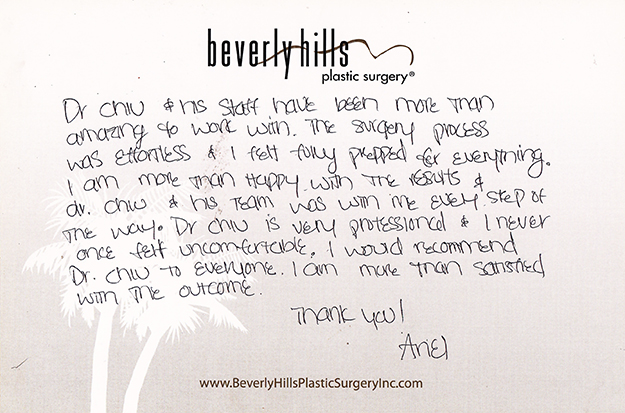 beverlyhills
plastic surgery®
Dr Chiu & his staff have been more than
amazing to work with. The surgery process
was effortless & I felt fully prepped for everything.
I am more than happy with the results &
dr. Chiu & his team was with me every step of
the way. Dr Chiu is very professional & I never
once felt uncomfortable. I would recommend
Dr. Chiu to everyone. I am more than satisfied
with the outcome.
Thank you!
Ariel
www.BeverlyHillsPlasticSurgeryInc.com